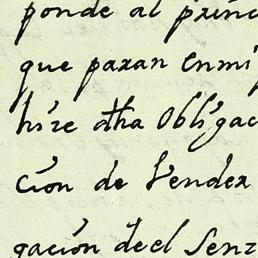 ponde al princ
que paran en mi
hize dha obligac
ción de Vender
gación de el Senz